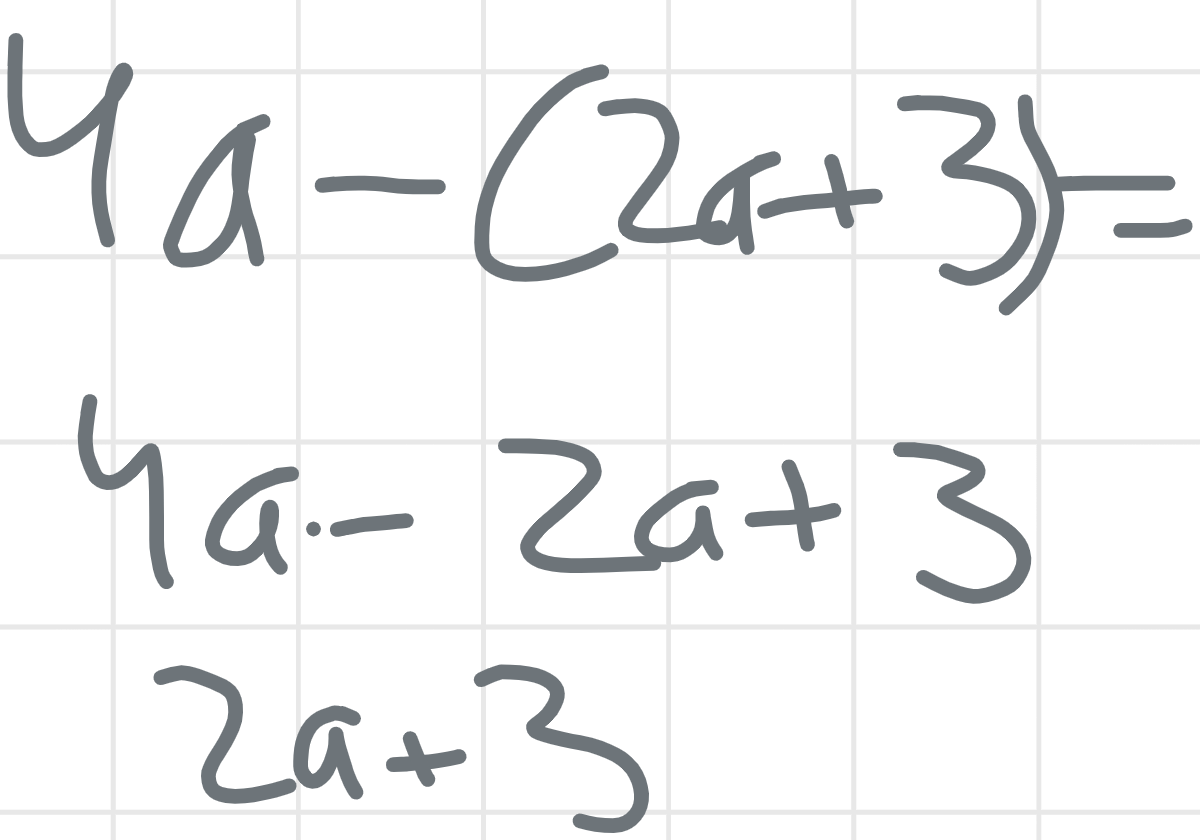 4a - (2a + 3) =
4a - 2a + 3
2a + 3